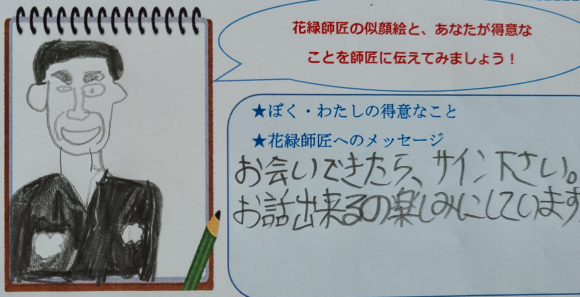 花緑師匠の似顔絵と、あなたが得意な
ことを師匠に伝えてみましょう！
★ぼく・わたしの得意なこと
★花緑師匠へのメッセージ
お会いできたら、サイン下さい。
お話出来るの楽しみにしています